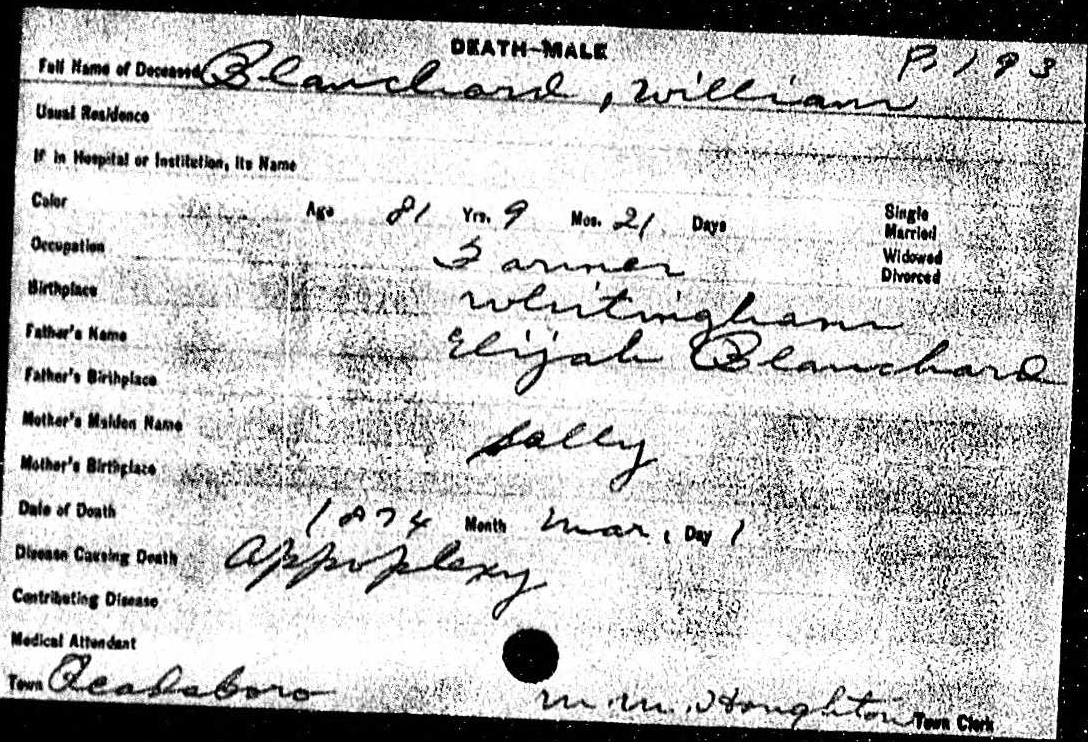 DEATH—MALE P. 193
Full Name of Deceased Blanchard, William
Usual Residence
If in Hospital or Institution, Its Name
Color Age 81 Yrs. 9 Mos. 21 Days Single
Married
Occupation Farmer Widowed
Divorced
Birthplace Whitingham
Father's Name Elijah Blanchard
Father's Birthplace
Mother's Maiden Name Sally
Mother's Birthplace
Date of Death 1874 Month Mar. Day 1
Disease Causing Death Appoplexy
Contributing Disease
Medical Attendant
Town Readsboro M. M. Houghton Town Clerk